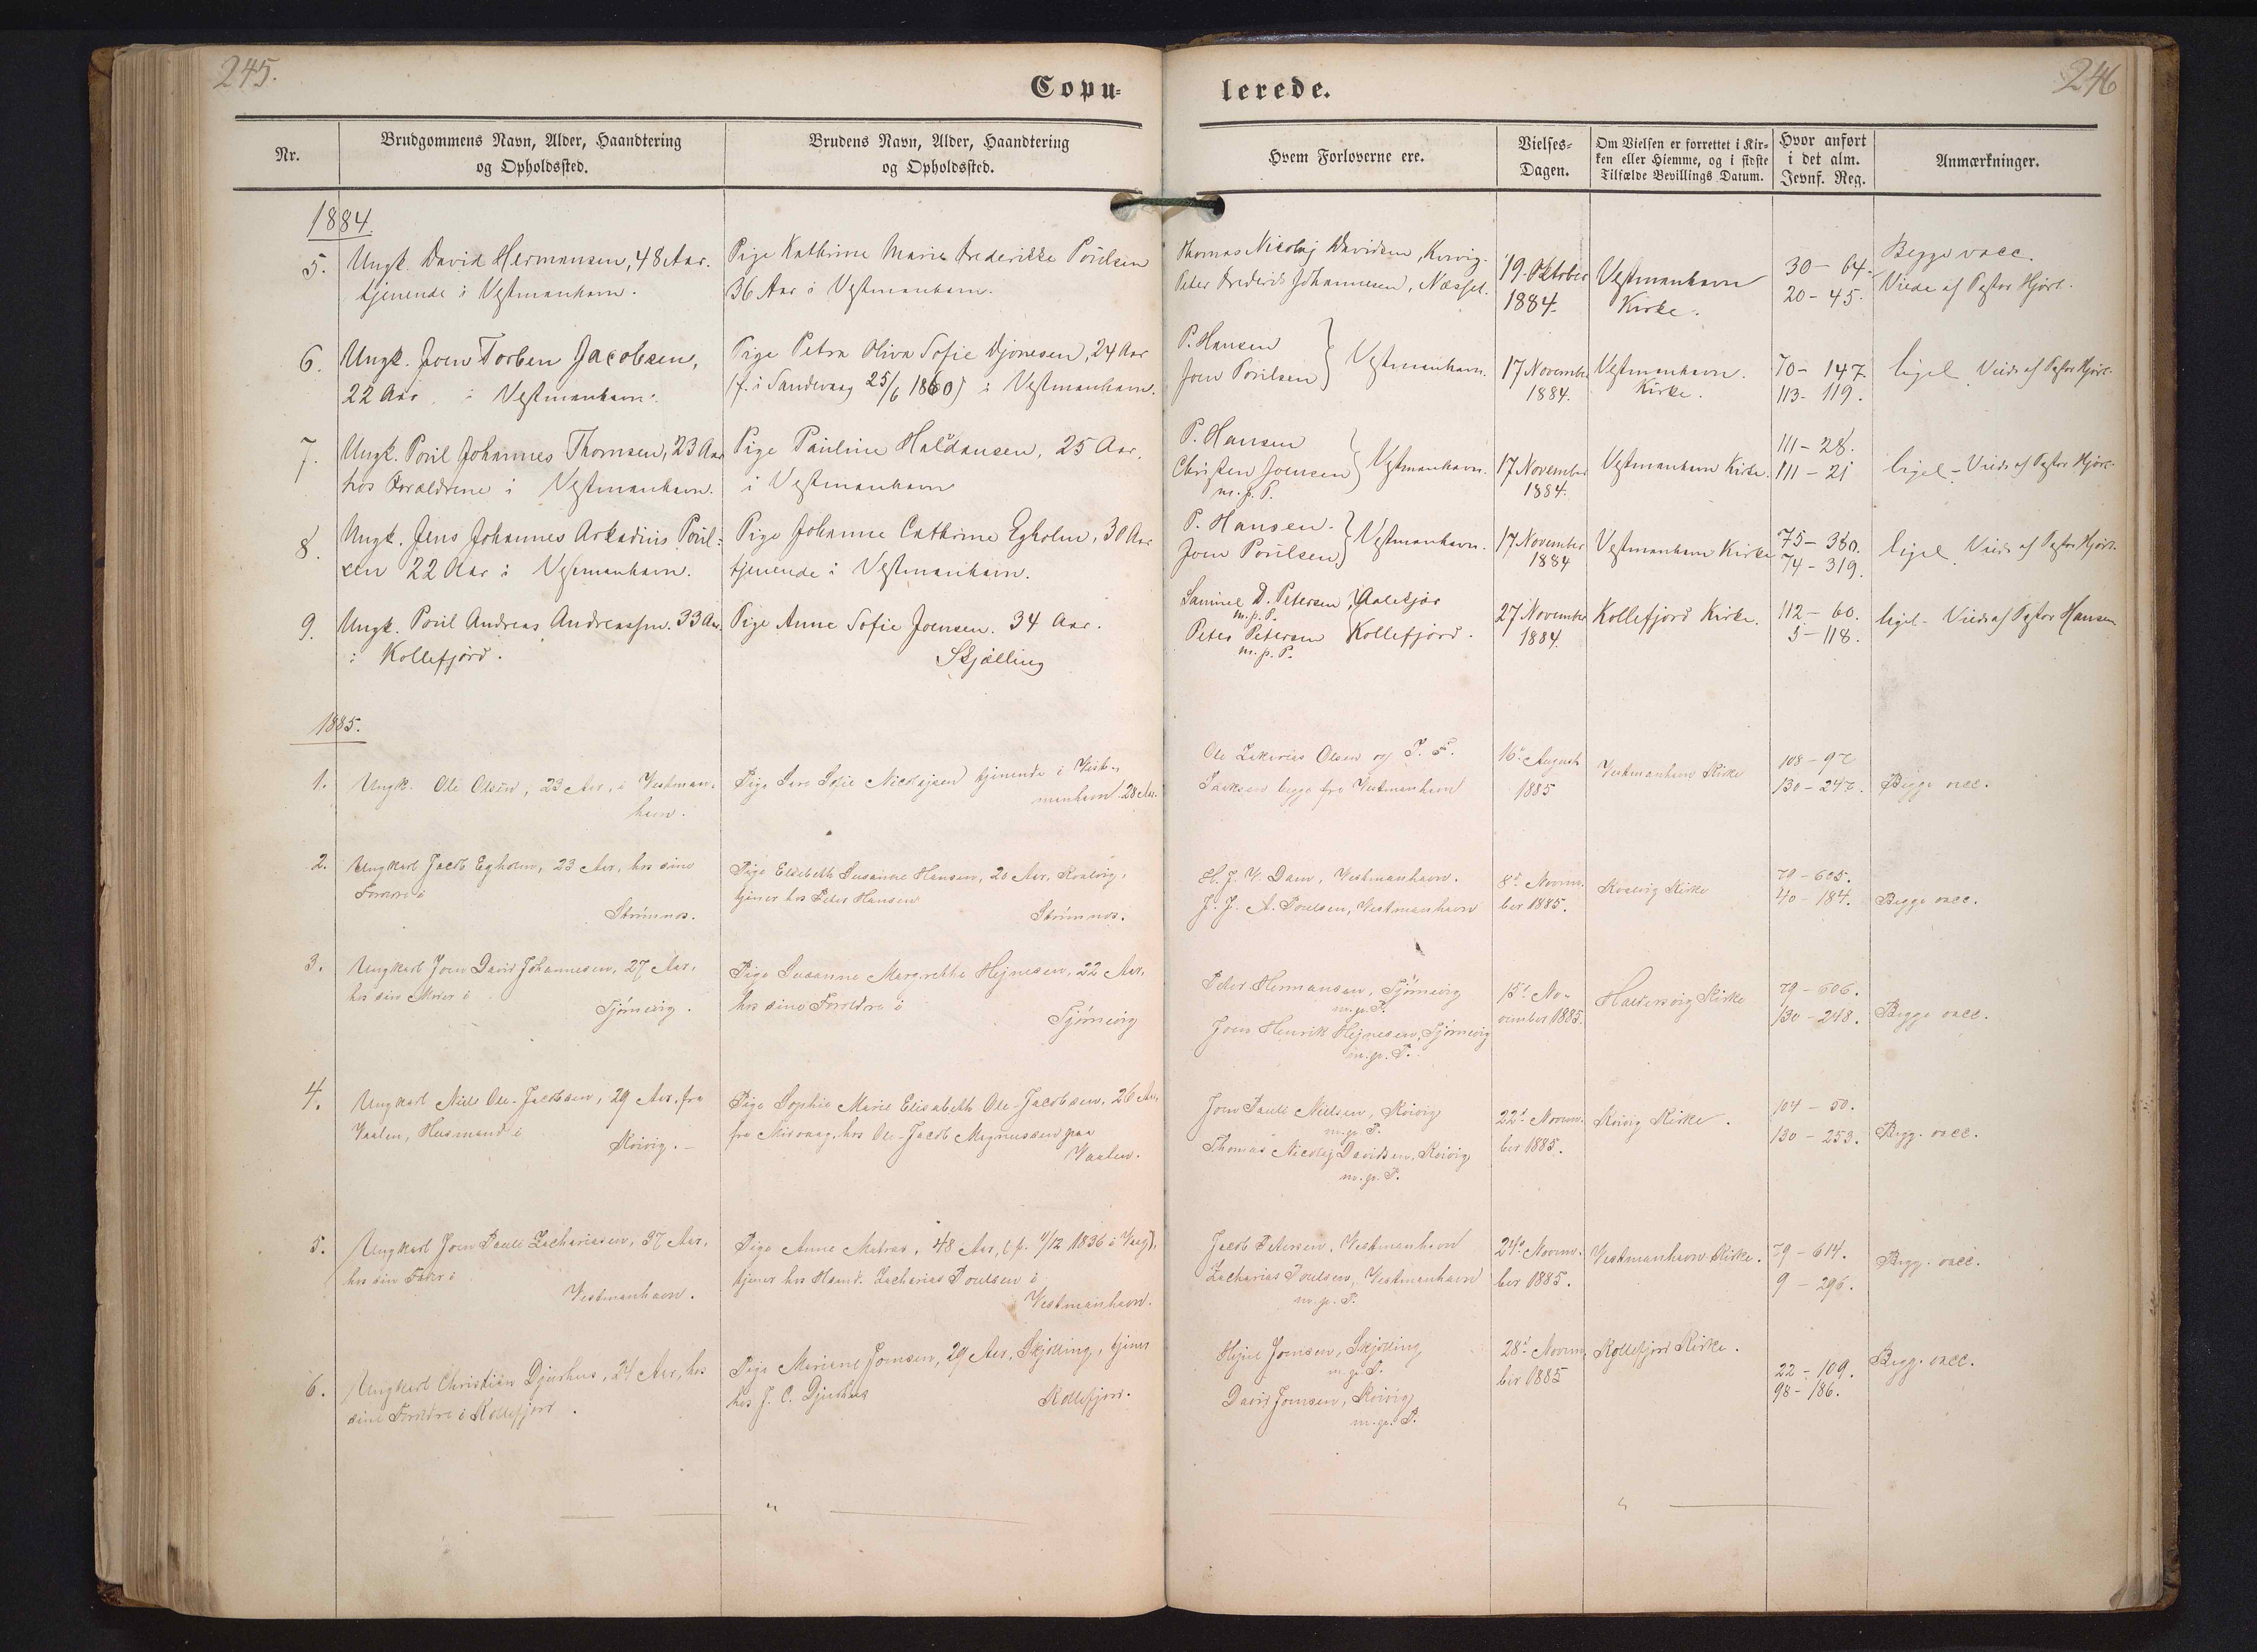 245.
Copu-
lerede.
246
Nr.
Brudgommens Navn, Alder, Haandtering
og Opholdssted.
Brudens Navn, Alder, Haandtering
og Opholdssted.
Hvem Forloverne ere.
Vielses-
Dagen.
Om Vielsen er forrettet i Kir-
ken eller Hiemme, og i sidste
Tilfælde Bevillings Datum.
Hvor anført
i det alm.
Jevnf. Reg.
Anmærkninger.
1884.
5.
Ungk. David Hermansen, 48 Aar.
tjenende i Vestmanhavn.
Pige Kathrine Marie Frederikke Poulsen
36 Aar i Vestmanhavn.
Thomas Nicolaj Davidsen, Kvivig.
Peter Frederik Johannesen, Næsset.
19. Oktober
1884.
Vestmanhavn
Kirke.
30 - 64.
20 - 45.
Begge vacc.
Viede af Pastor Hjort.
6.
Ungk. Joen Torben Jacobsen,
22 Aar i Vestmanhavn.
Pige Petra Oliva Sofie Djonesen, 24 Aar
(f. i Sandevaag 25/6 1860) i Vestmanhavn.
P. Hansen
Joen Poulsen } Vestmanhavn.
17 November
1884.
Vestmanhavn.
Kirke.
70 - 147.
113 - 119.
ligel. Viede af Pastor Hjort.
7.
Ungk. Poul Johannes Thomsen, 23 Aar
hos Forældrene i Vestmanhavn.
Pige Pauline Haldansen, 25 Aar.
i Vestmanhavn
P. Hansen
Christen Joensen } Vestmanhavn.
m. p. P.
17 November
1884.
Vestmanhavn Kirke.
111 - 28.
111 - 21
ligel - Viede af Pastor Hjort.
8.
Ungk. Jens Johannes Arkadius Poul-
sen 22 Aar i Vestmanhavn.
Pige Johanne Cathrine Egholm, 30 Aar
tjenende i Vestmanhavn.
P. Hansen.
Joen Poulsen } Vestmanhavn.
17 November
1884
Vestmanhavn Kirke
75 - 380.
74 - 319.
ligel. Viede af Pastor Hjort.
9.
Ungk. Poul Andreas Andreassen. 33 Aar.
i Kollefjord.
Pige Anne Sofie Joensen. 34 Aar.
Skjælling
Samuel D. Petersen,
m. p. P.
Peter Petersen Kollefjord.
m. p. P.
27 November
1884.
Kollefjord Kirke.
112 - 60.
5 - 118.
ligel - Viede af Pastor Hansen
1885.
1.
Ungk. Ole Olsen, 23 Aar, i Vestman-
havn.
Pige Sofie Nicolajsen tjenende i Vest-
manhavn. 28 Aar.
Ole Zakarias Olsen og P. F.
Isaksen begge fra Vestmanhavn
16de August
1885
Vestmanhavn Kirke
108 - 97
130 - 247.
Begge vacc.
2.
Ungkarl Jacob Egholm, 23 Aar, hos sine
Forældre i
Strømnæs.
Pige Elsebeth Susanne Hansen, 20 Aar, Kvalvig,
tjener hos Peter Hansen
Strømnæs.
H. J. V. Dam, Vestmanhavn.
J. J. A. Poulsen, Vestmanhavn
8de Novem-
ber 1885.
Kvalvig Kirke
79 - 605.
40 - 184.
Begge vacc.
3.
Ungkarl Joen David Johannesen, 27 Aar,
hos sin Moder i
Tjørnevig.
Pige Susanne Margrethe Hejnesen, 22 Aar,
hos sine Forældre i
Tjørnevig
Peter Hermansen, Tjørnevig
m. p. P.
Joen Henrik Hejnesen, Tjørnevig
m. p. P.
15de No-
vember 1885.
Haldersvig Kirke
79 - 606.
130 - 248.
Begge vacc.
4.
Ungkarl Niels Ole-Jacobsen, 29 Aar, fra
Vaalen, Husmand i
Kvivig. -
Pige Sophie Marie Elisabeth Ole-Jacobsen, 26 Aar,
fra Midvaag, hos Ole-Jacob Magnussen paa
Vaalen.
Joen Pauli Nielsen, Kvivig
m. p. P.
Thomas Nicolaj Davidsen, Kvivig
m. p. P.
22de Novem-
ber 1885.
Kvivig Kirke.
104 - 50.
130 - 253.
Begg. vacc.
5.
Ungkarl Joen Pauli Zachariasen, 37 Aar,
hos sin Fader i
Vestmanhavn.
Pige Anne Matras, 48 Aar, (f. 4/12 1836 i Vaag),
tjener hos Husmd. Zacharias Poulsen i
Vestmanhavn.
Jacob Petersen, Vestmanhavn
Zacharias Poulsen, Vestmanhavn
m. p. P.
24de Novem-
ber 1885.
Vestmanhavn Kirke.
79 - 614.
9 - 296.
Begg. vacc.
6.
Ungkarl Christian Djurhus, 24 Aar, hos
sine Forældre i Kollefjord.
Pige Mariane Joensen, 29 Aar, Skjælling, tjener
hos J. C. Djurhus
Kollefjord.
Hejne Joensen, Skjelling
m. p. P.
David Joensen, Kvivig
m. p. P.
28de Novem-
ber 1885
Kollefjord Kirke.
22 - 109.
98 - 186.
Begg. vacc.